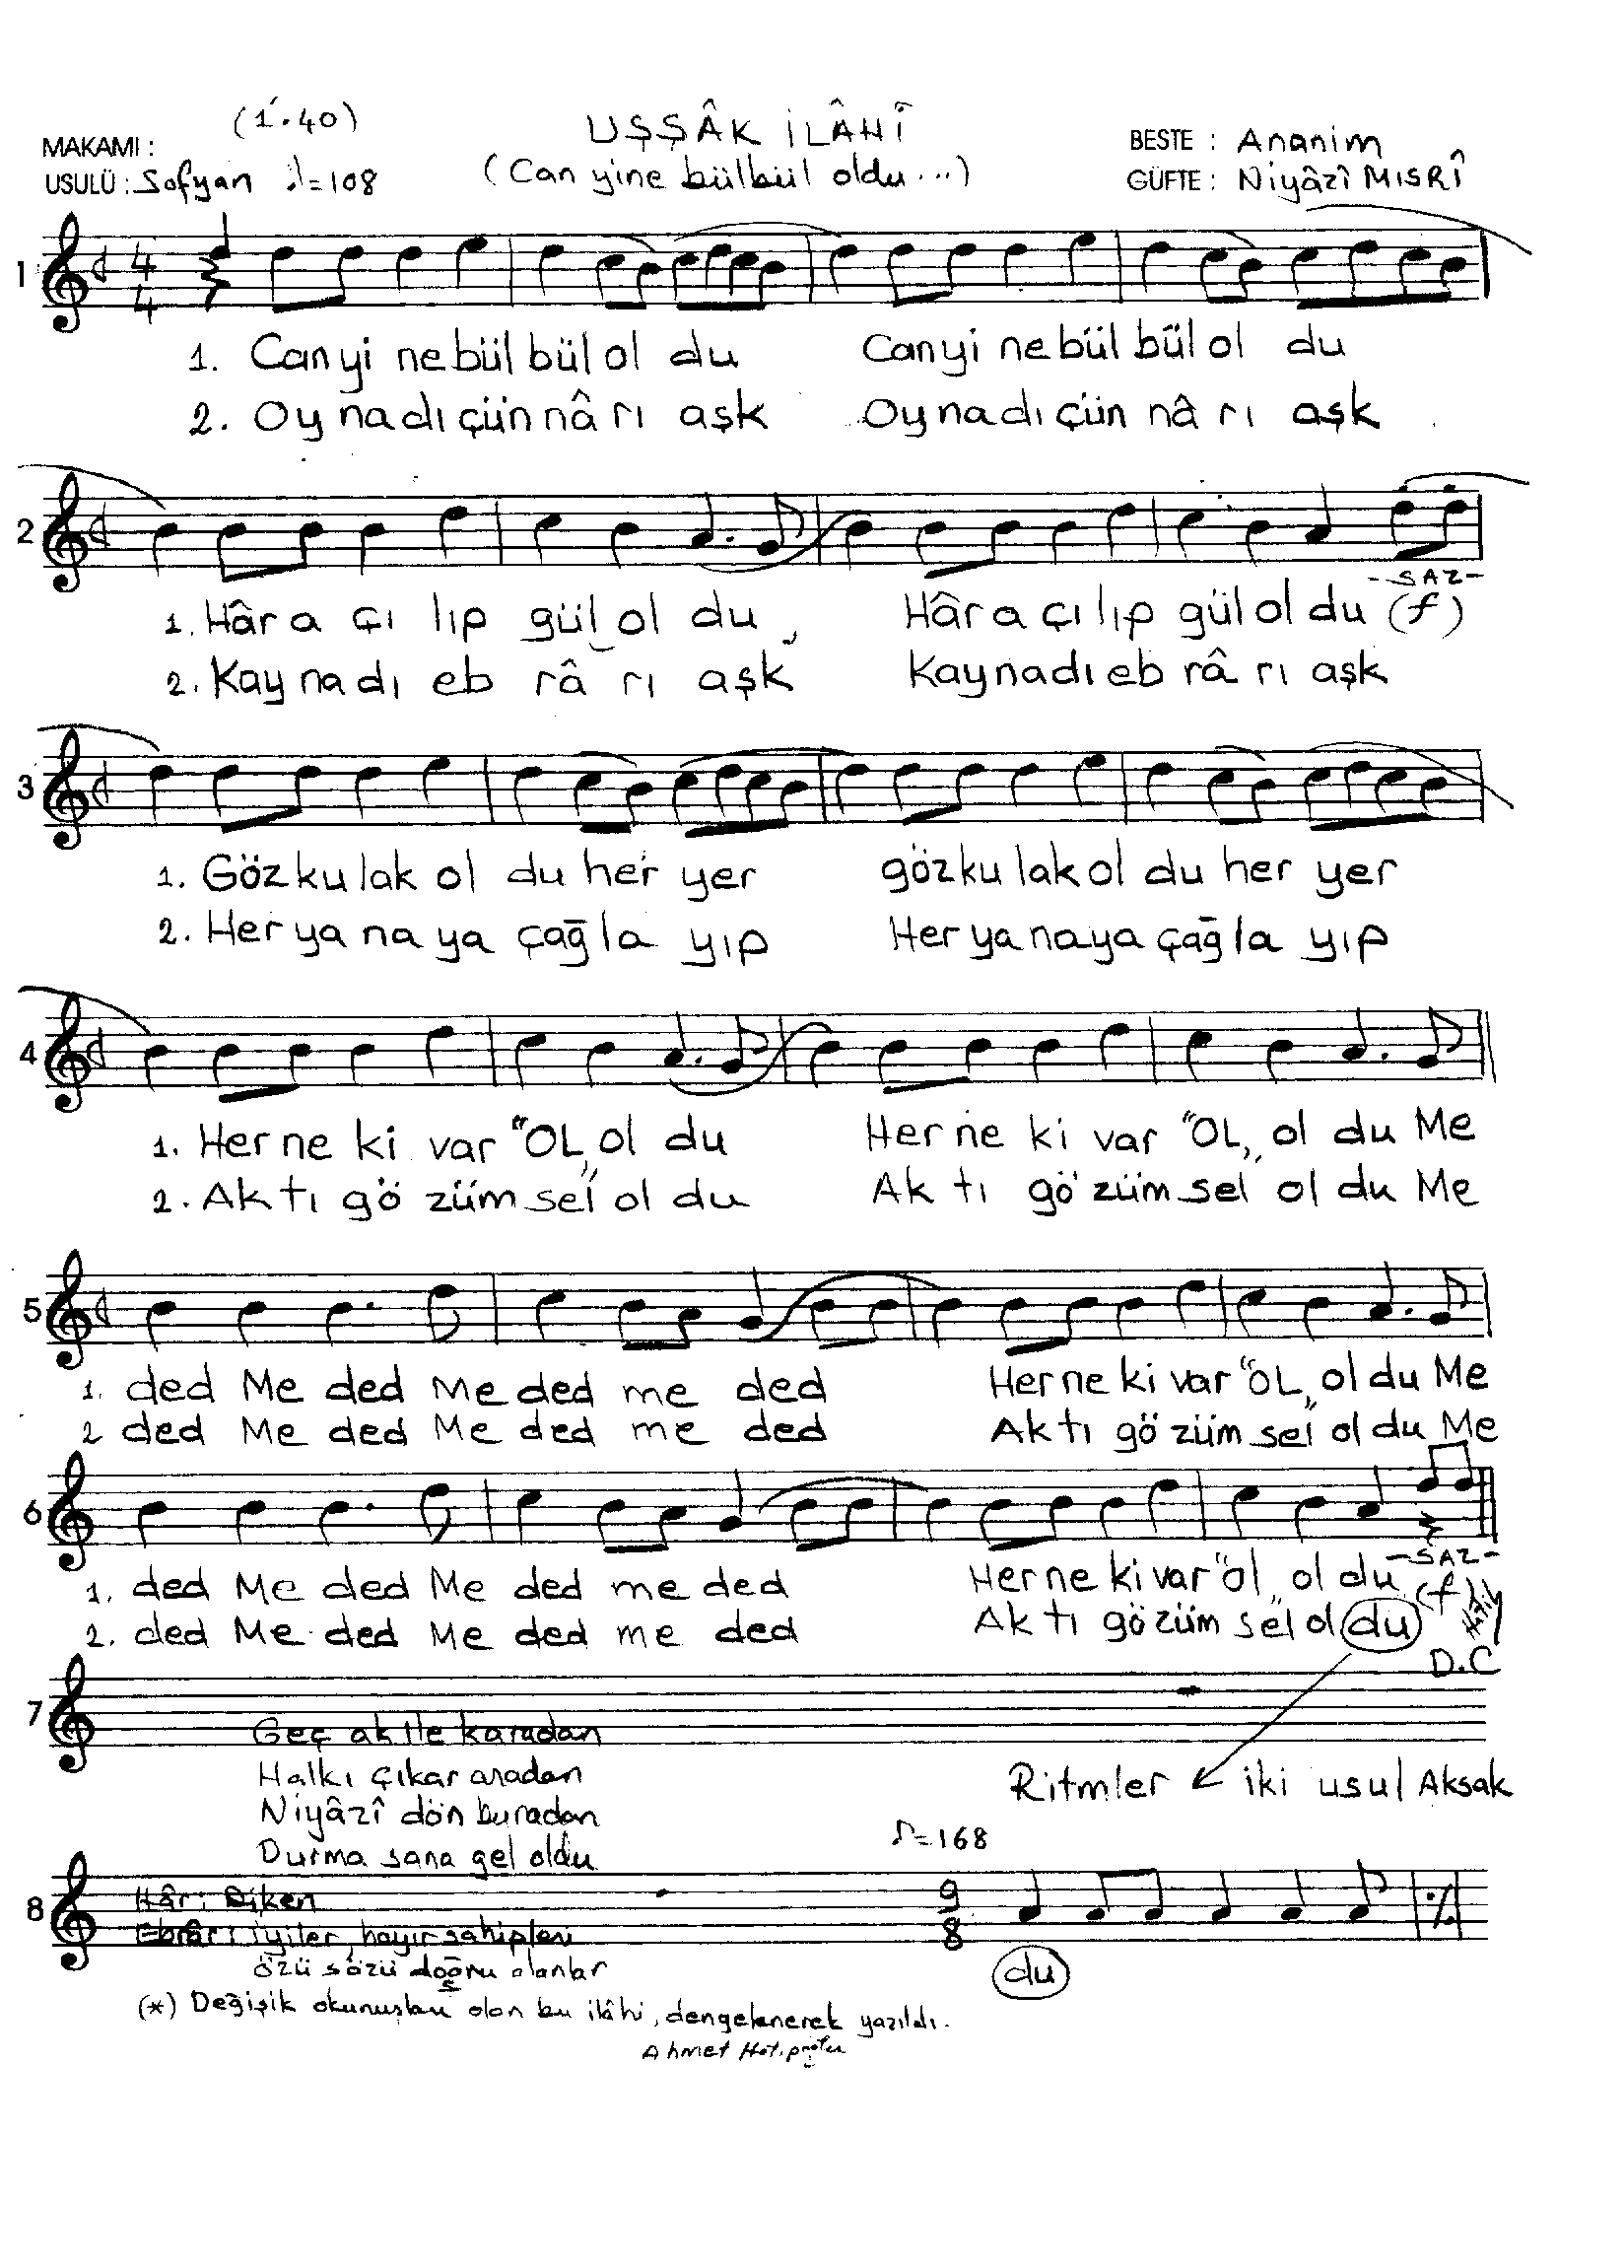 (1'.40)
UŞŞÂK İLÂHÎ
MAKAMI :
BESTE : Ananim
USULÜ : Sofyan ♩=108
(Can yine bülbül oldu...)
GÜFTE : Niyâzî MISRÎ
1
4
4
1. Can yi ne bül bül ol du Can yi ne bül bül ol du
2. Oy na dı çün nâ rı aşk Oy na dı çün nâ rı aşk
2
-SAZ-
1. Hâr a çı lıp gül ol du, Hâr a çı lıp gül ol du (f)
2. Kay na dı eb râ rı aşk Kay na dı eb râ rı aşk
3
1. Göz ku lak ol du her yer göz ku lak ol du her yer
2. Her ya na ya çağ la yıp Her ya na ya çağ la yıp
4
1. Her ne ki var "OL" ol du Her ne ki var "OL" ol du Me
2. Ak tı gö züm sel ol du Ak tı gö züm sel ol du Me
5
1. ded Me ded Me ded me ded Her ne ki var "OL" ol du Me
2 ded Me ded Me ded me ded Ak tı gö züm sel ol du Me
6
-SAZ-
1. ded Me ded Me ded me ded Her ne ki var "öl" ol du (f)
2. ded Me ded Me ded me ded Ak tı gö züm sel ol du
D.C
7
Geç ak ile karadan
Halkı çıkar aradan
Ritmler iki usul Aksak
Niyâzî dön buradan
♪=168
Durma sana gel oldu
8
Hâr : Diken
9
8
Ebrâr : İyiler, hayır sahipleri
özü sözü doğru olanlar
du
(*) Değişik okunuşları olan bu ilâhi, dengelenerek yazıldı.
Ahmet Hatipoğlu